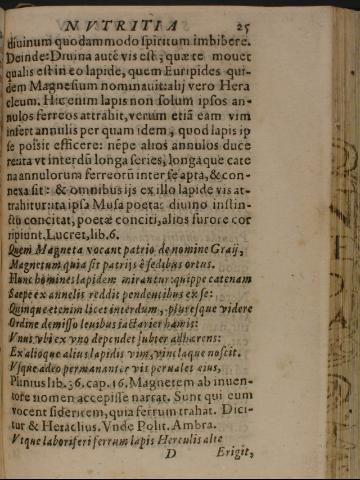 NVTRITIA 25
diuinum quodammodo spiritum imbibere.
Deinde: Diuina autē vis est, quæ te mouet
qualis est in eo lapide, quem Euripides qui-
dem Magnesium nominauit: alij vero Hera
cleum. Hic enim lapis non solum ipsos an-
nulos ferreos attrahit, verum etiā eam vim
insert annulis per quam idem, quod lapis ip
se possit efficere: nēpe alios annulos duce
re: ita vt interdū longa series, longaque cate
na annulorum ferreorū inter se apta, & con-
nexa sit: & omnibus ijs ex illo lapide vis at-
trahitur: ita ipsa Musa poetas diuino instin-
ctu concitat, poetæ conciti, alios furore cor
ripiunt. Lucret. lib. 6.
Quem Magneta vocant patrio de nomine Graij,
Magnetum quia sit patrijs ê sedibus ortus.
Hunc homines lapidem mirantur: quippe catenam
Saepe ex annelis reddit pendentibus ex se:
Quinque etenim licet interdum, pluresque videre
Ordine demisso leuibus iactarier hamis:
Vnus vbi ex vno dependet subter adhærens:
Ex alioque alius lapidis vim, vinclaque noscit.
Vsque adeo permananter vis perualet eius,
Plinius lib. 36. cap. 16. Magnetem ab inuen-
tore nomen accepisse narrat. Sunt qui eum
vocent sideritem, quia ferrum trahat. Dici-
tur & Heraclius. Vnde Polit. Ambra.
Vtque laboriferi ferrum lapis Herculis alte
D Erigit,